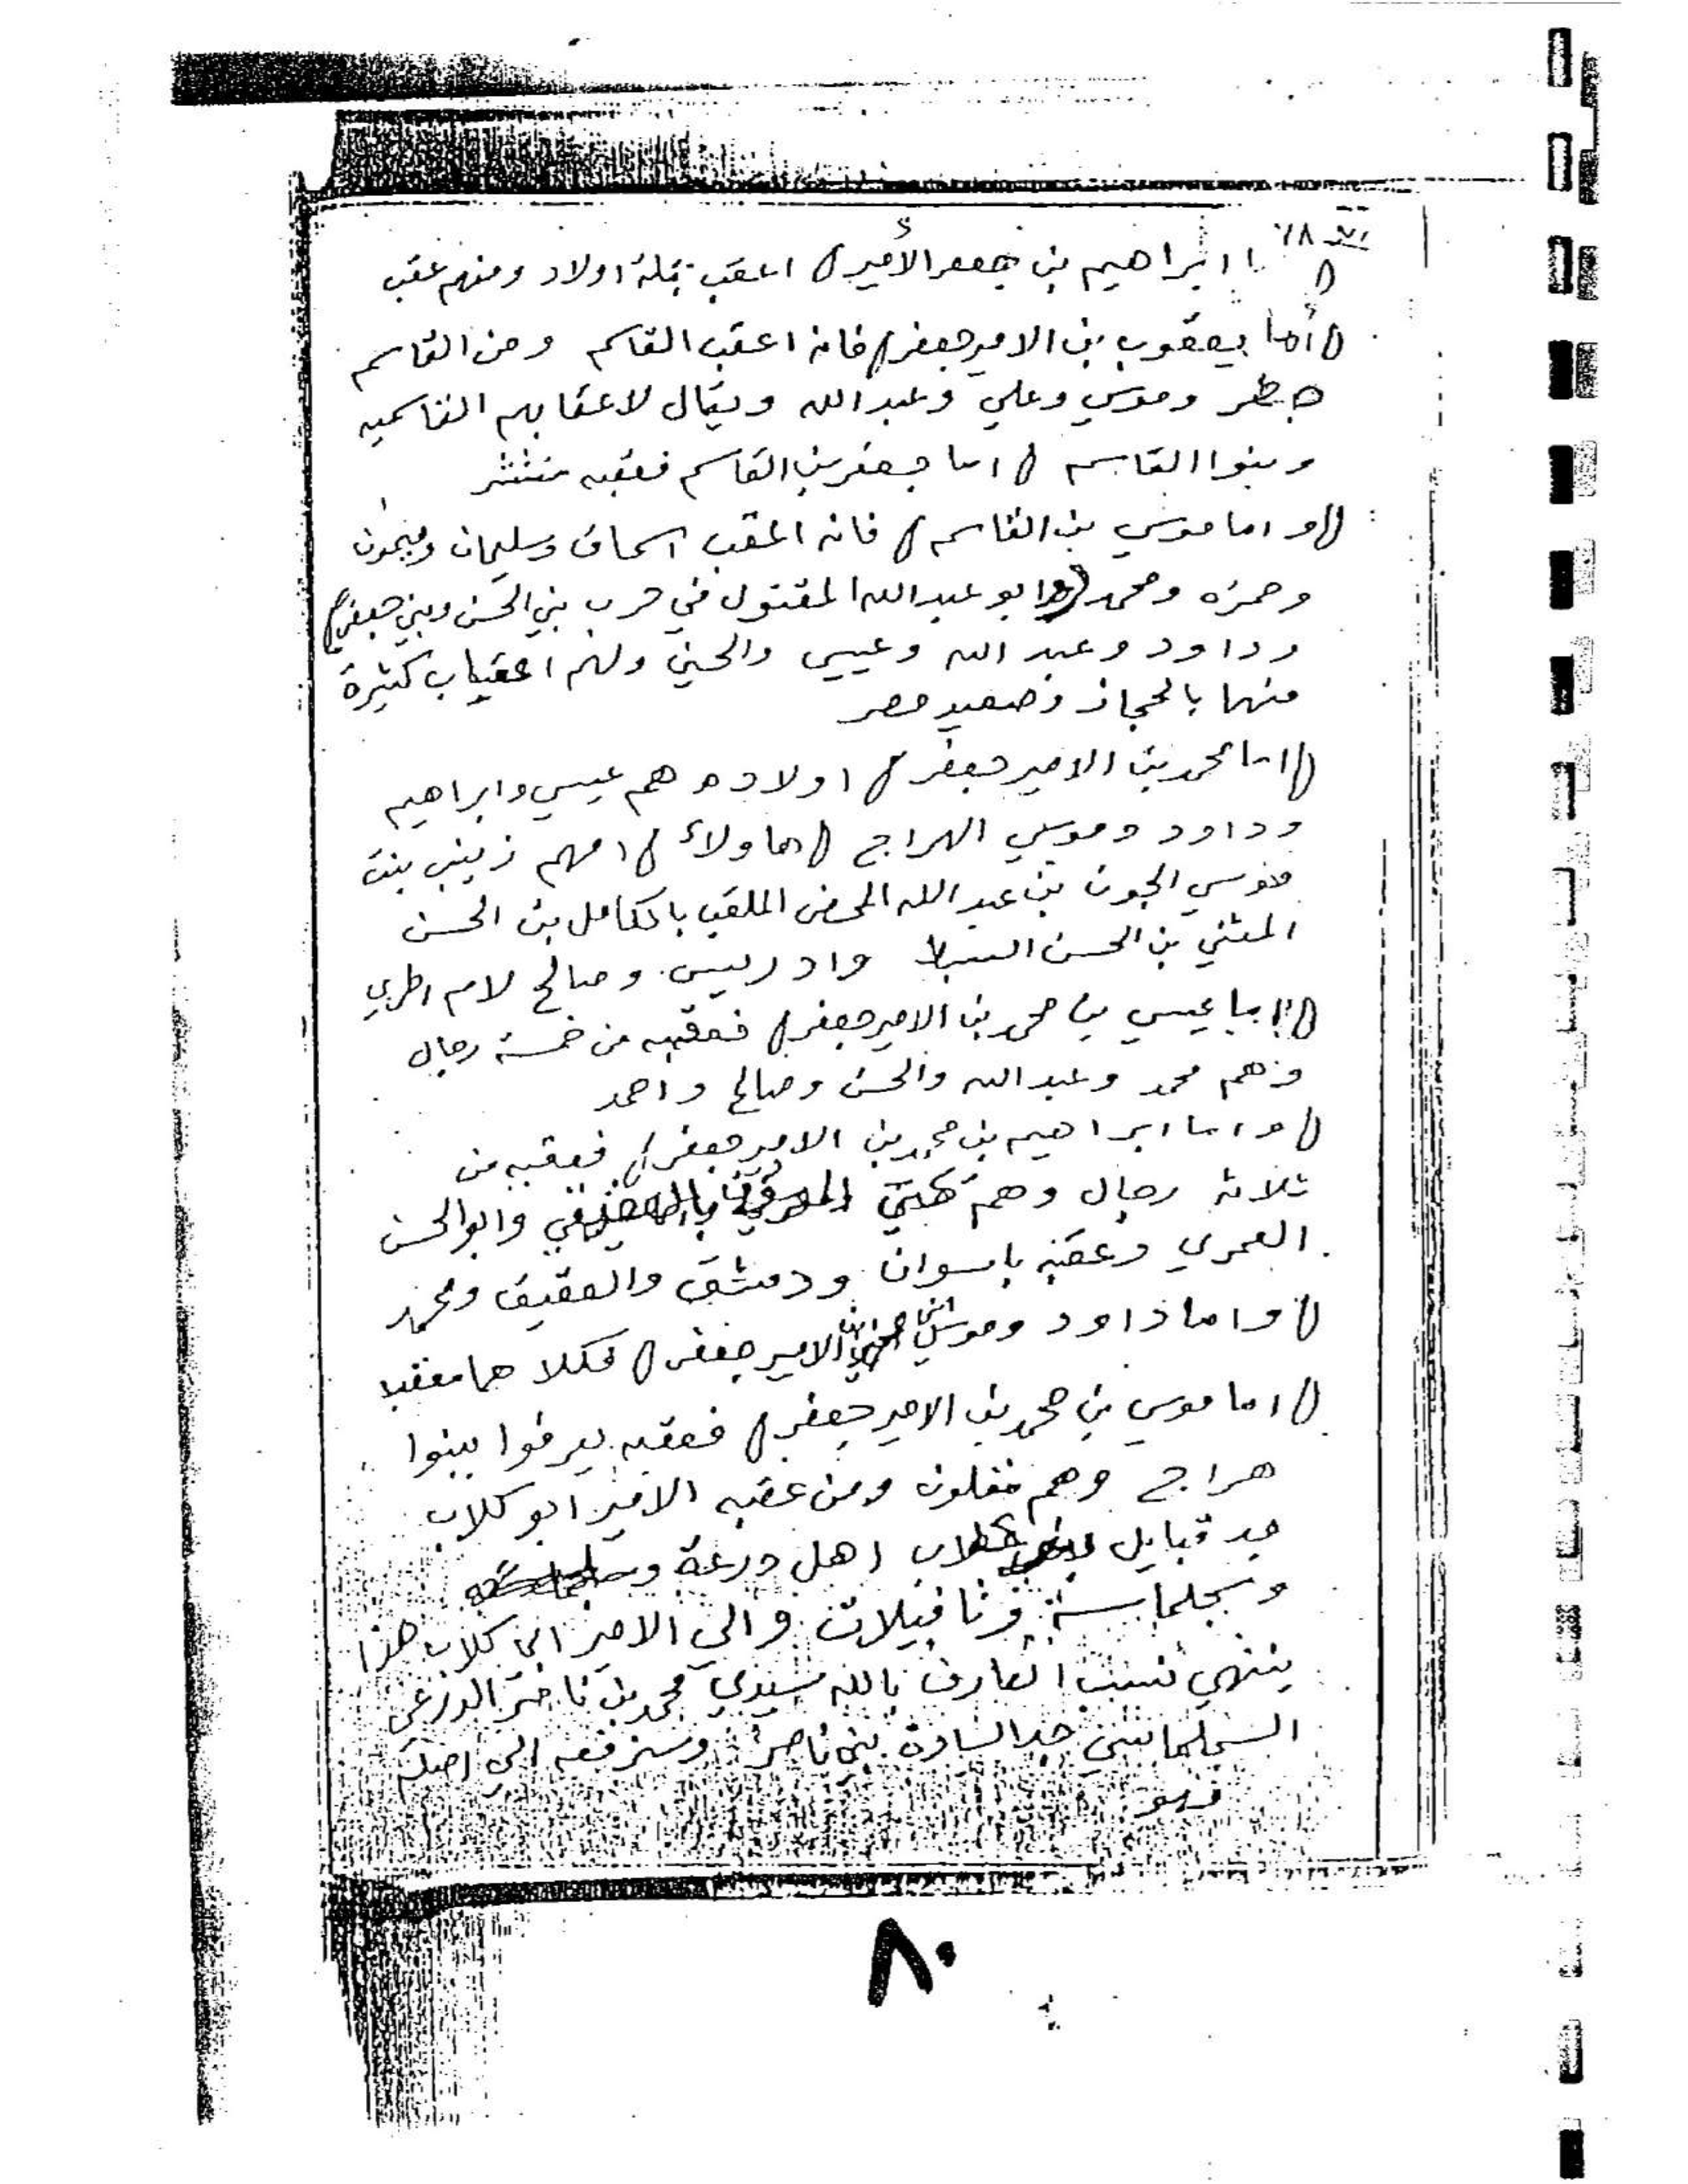 ٧٨
ابراهيم بن جعفر الأمير) اعقب ثلثة اولاد ومنهم عقب
(أما يعقوب بن الامير جعفر) فانه اعقب القاسم ومن القاسم
وموسي وعلي وعبد الله ويقال لاعقابهم القاسميه
وبنوا القاسم ( اما جعفر بن القاسم فعقبه منتشر
(و اما موسي بن القاسم) فانه اعقب اسحاق وسليمان وميمون
وحمزه ومحمد (وابو عبد الله المقتول في حرب بني الحسن وبني جعفر)
وداود وعبد الله وعيسي والحسن ولهم اعقاب كثيرة
منها بالحجاز وصعيد مصر
(اما محمد بن الامير جعفر) اولاده هم عيسي وابراهيم
وداود وموسي الهراج (هاولاء) امهم زينب بنت
موسي الجون بن عبد الله المحض الملقب بالكامل بن الحسن
المثني بن الحسن السبط وادريس وصالح لام اخري
(اما عيسي بن محمد بن الامير جعفر) فعقبه من خمسة رجال
وهم محمد وعبد الله والحسن وصالح واحمد
(واما ابراهيم بن محمد بن الامير جعفر) فعقبه من
ثلاثه رجال وهم وابو الحسن
العمري وعقبه باسوان ودمشق والعقيق ومحمد
(واما داود وموسي الامير جعفر) فكلاهما معقب
(اما موسي بن محمد بن الامير جعفر) فعقبه يعرفوا ببنوا
هراج وهم مقلون ومن عقبه الامير ابو كلاب
جد قبايل كلاب اهل درعة و
وسجلماسة وتافيلات والي الامير ابي كلاب هذا
ينتهي نسب العارف بالله سيدي محمد بن ناصر الدرعي
السجلماسي جد السادة بني ناصر وسنرفعه الي اصله
فهو
٨٠